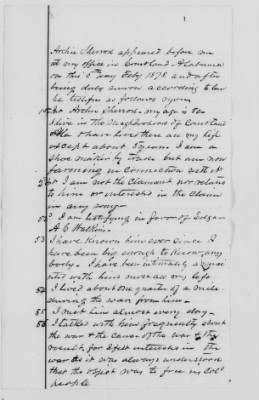 Archie Sherrod appeared before me
at my office in Courtland Alabama
on this 5th day Feby 1878 and after
being duly sworn according to law
he testifies as follows
Archie Sherrod my age is
I live in the neighborhood of Courtland
Ala & have lived there all my life
except about 5 years. I am a
shoe maker by trade but am now
farming in connection with it
I am not the claimant nor related
to him or interested in the claim
in any way
52 I am testifying in favor of Edgar
A C Watkins
53 I have known him ever since I
have been big enough to know any
body. I have been intimately acquain
ted with him most all my life
54 I lived about one quarter of a mile
during the war from him
55 I met him almost every day
56 I talked with him frequently about
the war & the cause of the war & the
result for I felt interested in the
war as it was always understood
that the object was to free us col'd
people